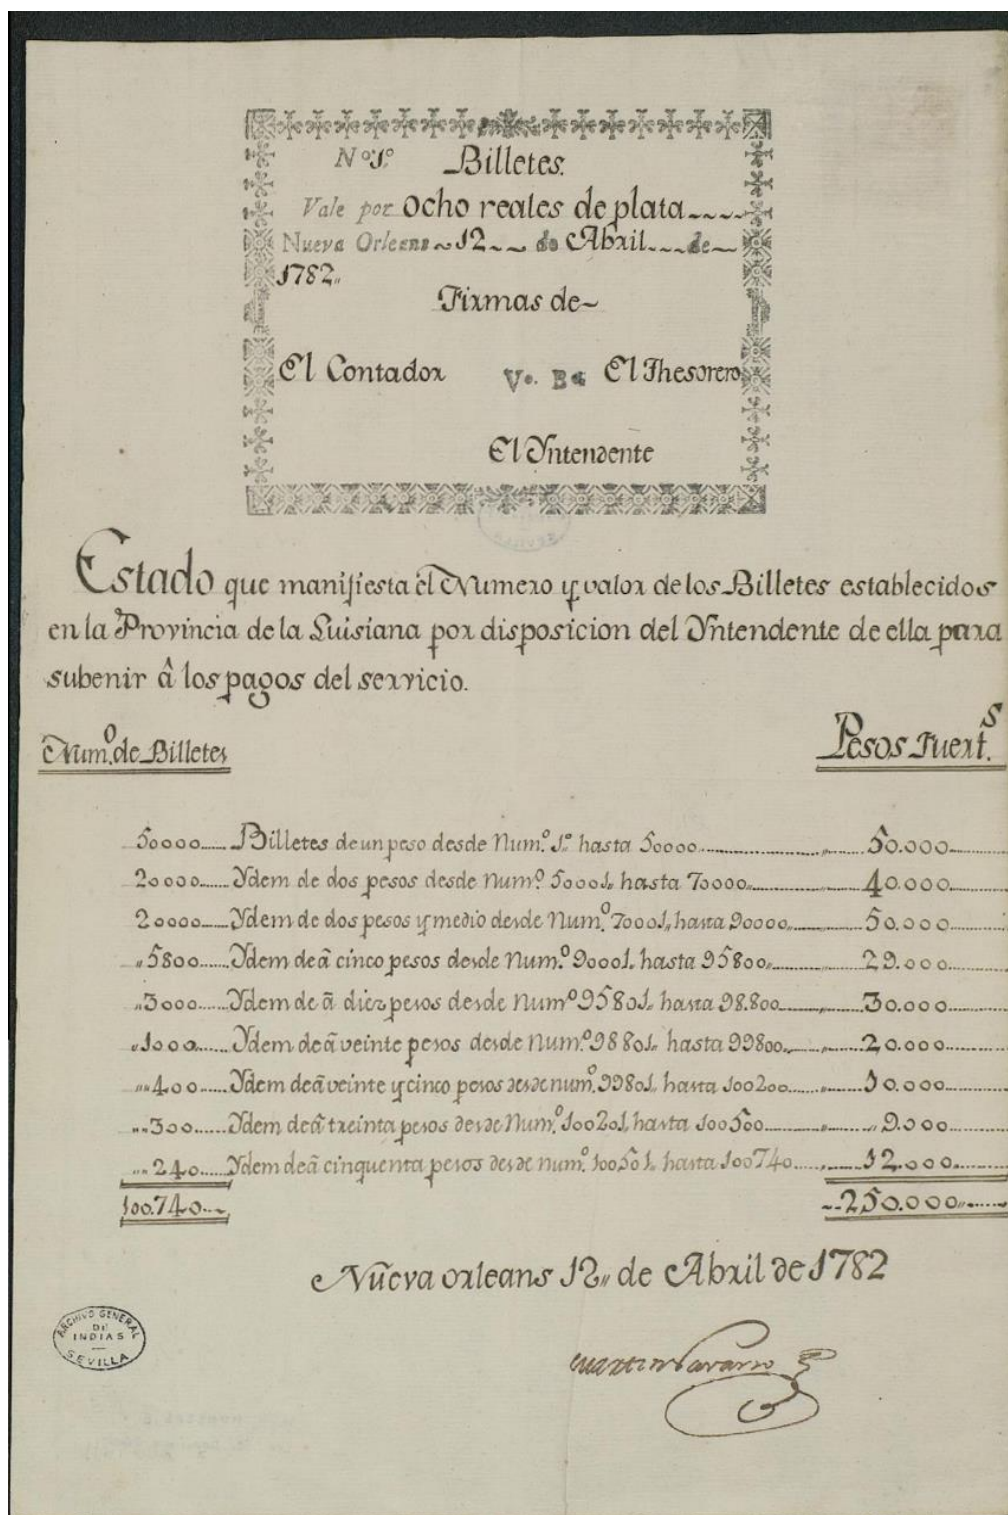 Nº 1º Billetes.
Vale por ocho reales de plata
Nueva Orleans 12 de Abril de
1782,,
Firmas de
El Contador Vº. Bº El Thesorero
El Yntendente
Estado que manifiesta el Numero y valor de los Billetes establecidos
en la Provincia de la Luisiana por disposicion del Yntendente de ella para
subenir â los pagos del servicio.
Num.º de Billetes Pesos Fuert.s
50000 Billetes de un peso desde Num.º 1.º hasta 50000 50.000
20000 Ydem de dos pesos desde Num.º 50001,, hasta 70000 40.000
20000 Ydem de dos pesos y medio desde Num.º 70001,, hasta 90000 50.000
,,5800 Ydem de â cinco pesos desde Num.º 90001,, hasta 95800 29.000
,,3000 Ydem de â diez pesos desde Num.º 95801,, hasta 98.800 30.000
,,1000 Ydem de â veinte pesos desde Num.º 98801,, hasta 99800 20.000
,,,,400 Ydem de â veinte y cinco pesos desde num.º 99801,, hasta 100200 10.000
,,,,300 Ydem de â treinta pesos desde Num.º 100201,, hasta 100500 ,,9.000
,,,,240 Ydem de â cinquenta pesos desde num.º 100501,, hasta 100740 12.000
100.740 250.000
Nueva orleans 12,, de Abril de 1782
Martin Navarro
ARCHIVO GENERAL
DE
INDIAS
SEVILLA